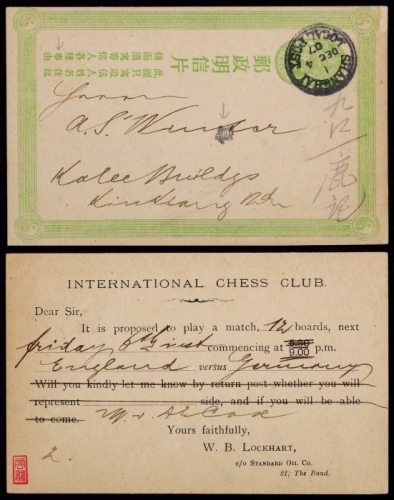 片信明政郵
此面只寫收信人姓名住址
SHANGHAI
LOCAL POST
1
DEC 4
07
Herrn
A. S. Winter
Kalee Buildgs
Kiukiang Rd.
九江
INTERNATIONAL CHESS CLUB.
Dear Sir,
It is proposed to play a match, 12 boards, next
friday 6th inst commencing at 8.30 p.m.
9.00
England versus Germany
Will you kindly let me know by return post whether you will
represent side, and if you will be able
to come.
Yours faithfully,
W. B. LOCKHART,
c/o STANDARD OIL CO.
21, The Bund.
2.